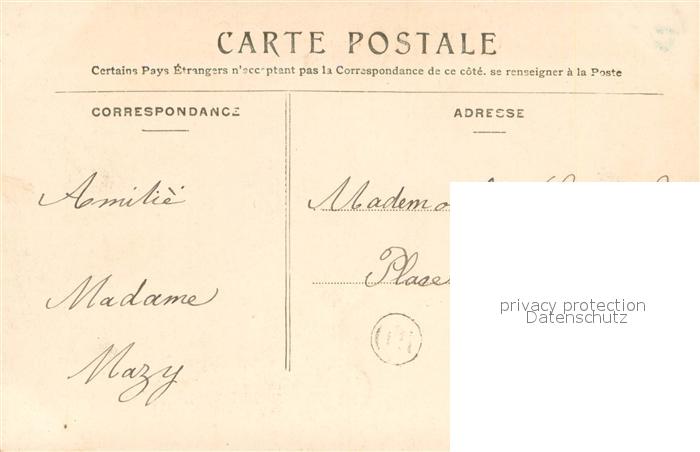 CARTE POSTALE
Certains Pays Étrangers n'acceptant pas la Correspondance de ce côté. se renseigner à la Poste
CORRESPONDANCE
Amitiè
Madame
Mazy
ADRESSE
Place
privacy protection
Datenschutz